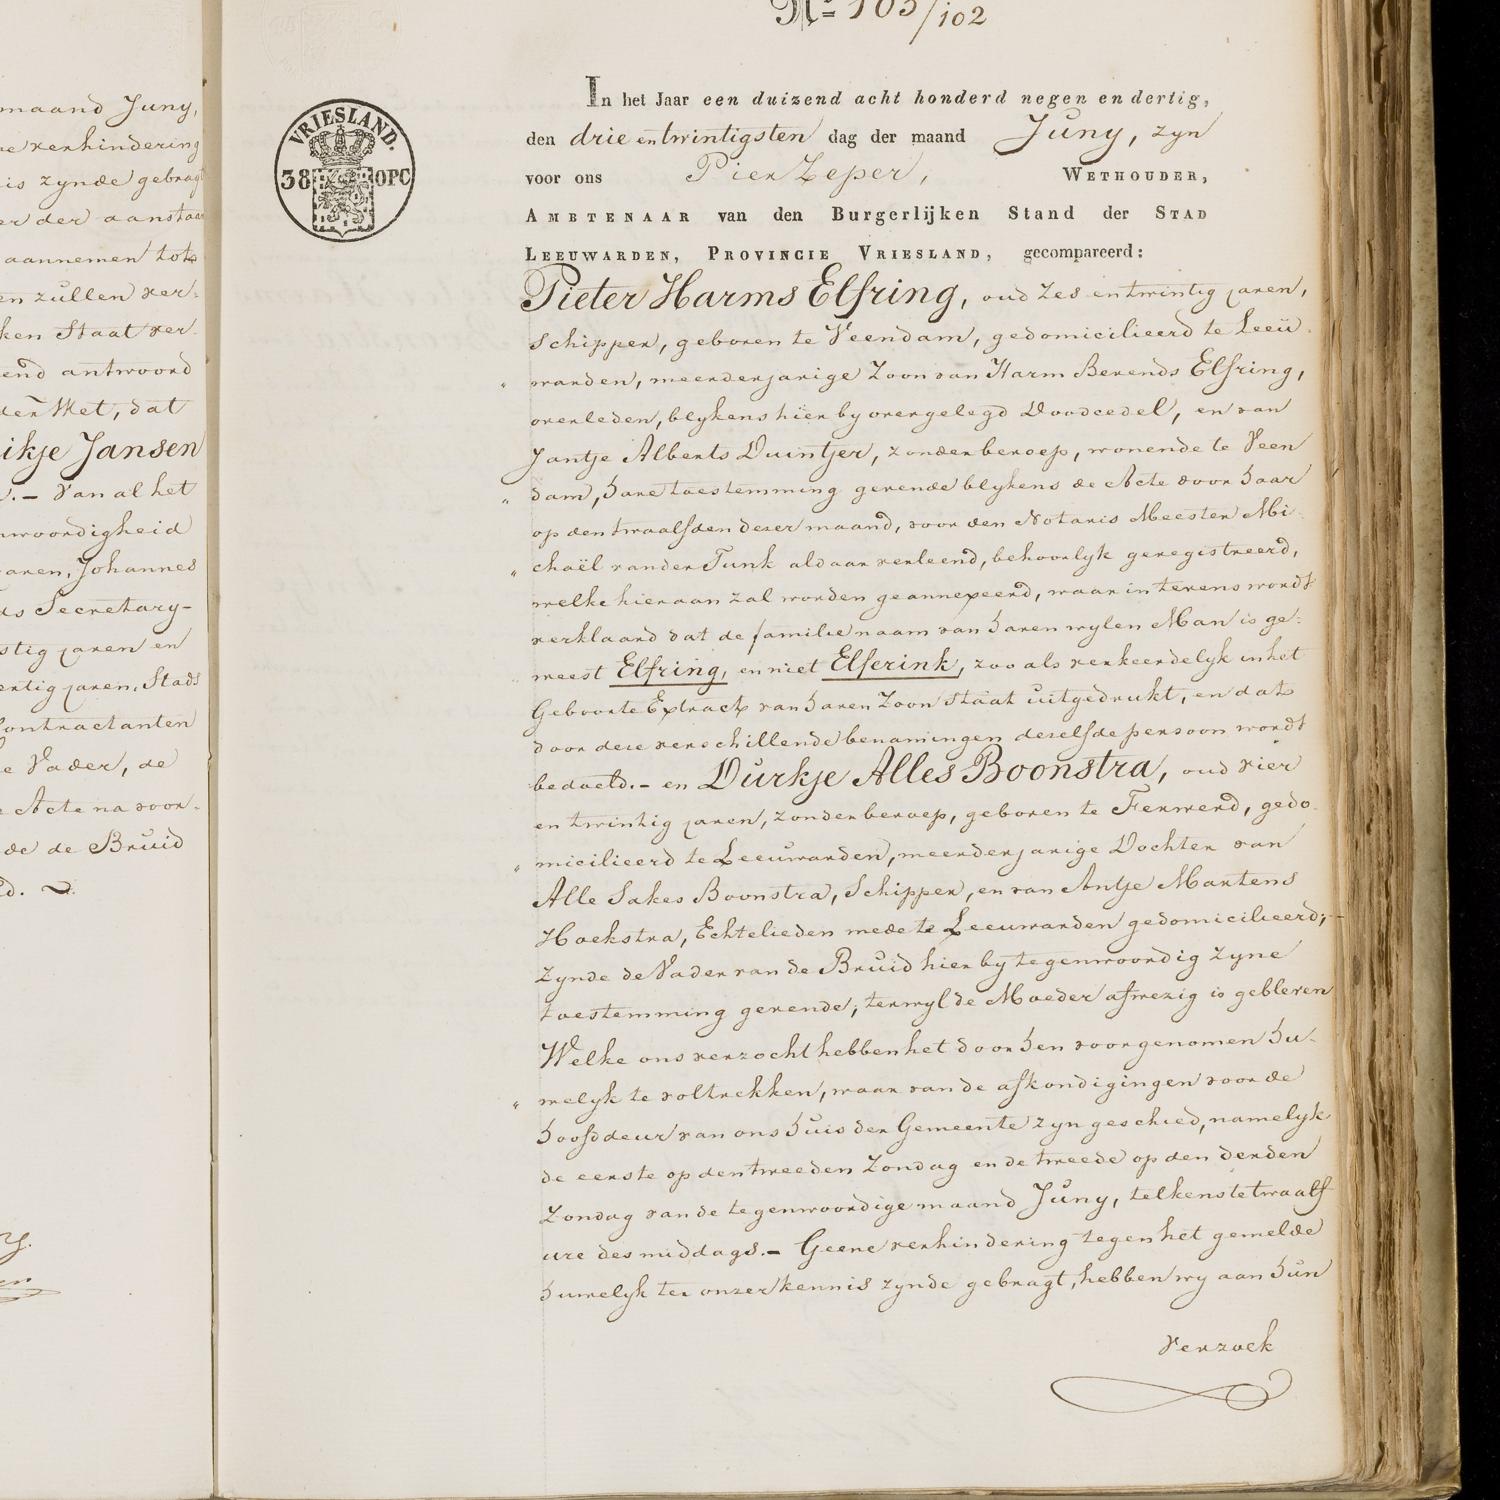 maand Juny,
verhindering
is zynde gebragt
er der aanstaan
aannemen tot
en zullen ver-
ken Staat ver-
end antwoord
der Wet, dat
ikje Jansen
. – Van al het
nwoordigheid
aren, Johannes
ds Secretary-
stig jaren en
ertig jaren, Stads
Contractanten
e Vader, de
e Acte na voor-
de de Bruid
d.
No 103/102
VRIESLAND.
38 OPC
In het Jaar een duizend acht honderd negen en dertig,
den drie en twintigsten dag der maand Juny, zyn
voor ons Pier Zeper, WETHOUDER,
AMBTENAAR van den Burgerlijken Stand der STAD
LEEUWARDEN, PROVINCIE VRIESLAND, gecompareerd:
Pieter Harms Elfring, oud zes en twintig jaren,
Schipper, geboren te Veendam, gedomicilieerd te Leeu-
" warden, meerderjarige Zoon van Harm Berends Elfring,
overleden, blykens hier by overgelegd Doodcedel, en van
Jantje Alberts Duintjer, zonder beroep, wonende te Veen
" dam, hare toestemming gevende blykens de Acte door haar
op den twaalfden dezer maand, voor den Notaris Meester Mi-
" chaël van der Tunk aldaar verleend, behoorlyk geregistreerd,
welke hieraan zal worden geannexeerd, waarin tevens wordt
verklaard dat de familienaam van haren wylen Man is ge-
" weest Elfring, en niet Elferink, zoo als verkeerdelyk in het
Geboorte Extract van haren Zoon staat uitgedrukt, en dat
door deze verschillende benamingen dezelfde persoon wordt
bedoeld. – en Durkje Alles Boonstra, oud vier
en twintig jaren, zonder beroep, geboren te Ferwerd, gedo-
" micilieerd te Leeuwarden, meerderjarige Dochter van
Alle Sakes Boonstra, Schipper, en van Antje Martens
Hoekstra, Echtelieden mede te Leeuwarden gedomicilieerd; –
zynde de Vader van de Bruid hier by tegenwoordig zyne
toestemming gevende; terwyl de Moeder afwezig is gebleven
Welke ons verzocht hebben het door hen voorgenomen hu-
" welyk te voltrekken, waar van de afkondigingen voor de
hoofddeur van ons huis der Gemeente zyn geschied, namelyk
de eerste op den tweeden Zondag en de tweede op den derden
Zondag van de tegenwoordige maand Juny, telkens te twaalf
ure des middags. – Geene verhindering tegen het gemelde
huwelyk ter onzer kennis zynde gebragt, hebben wy aan hun
verzoek